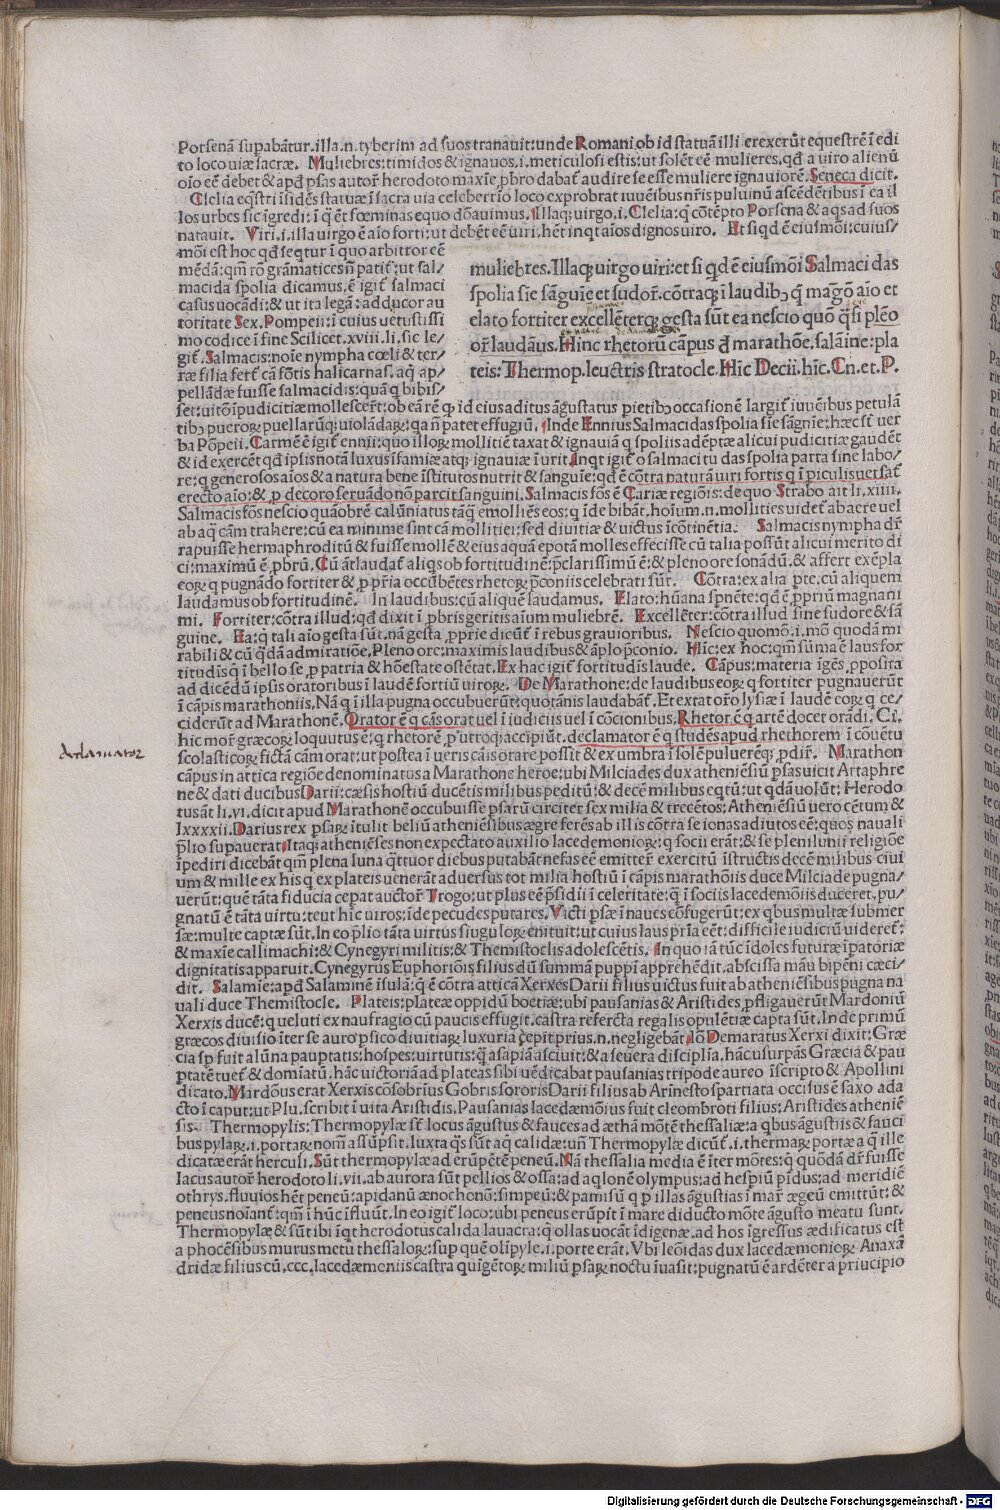 Porsenā supabātur.illa.n.tyberim ad suos tranauit:unde Romani ob id statuā illi erexerūt equestrē ī edi
to loco uiæ sacræ. Muliebres:timidos & ignauos.i.meticulosi estis:ut solēt eē mulieres.qd̄ a uiro alienū
aīo eē debet & apd̄ psas autor̄ herodoto maxīe pbro dabat audire se esse muliere ignauiorē.Seneca dicit.
Clelia eq̄stri īsidēs statuæ ī sacra uia celeberrīo loco exprobrat iuuēibus nr̄is puluinū ascēdētibus ī ea il
los urbes sic īgredi:ī q̄ ēt fœminas equo dōauimus.Illaq; uirgo.i.Clelia:q̄ cōtēpto Porsena & aq̄s ad suos
natauit. Viri.i.illa uirgo ē aīo forti:ut debēt eē uiri.hēt inqt aīos dignos uiro. Et si qd ē eiusmōi:cuius/
mōi est hoc qd̄ seqtur ī quo arbitror eē
mēdā:qm̄ rō grāmatices nō patit:ut sal/
macida spolia dicamus.ē igit salmaci
casus uocādi:& ut ita legā:adducor au
toritate Sex.Pompeii:ī cuius uetustissī
mo codice ī fine Scilicet.xviii.li.sic le/
git.Salmacis:noīe nympha cœli & ter/
ræ filia fert cā fōtis halicarnas.aq̄ ap/
pelladæ fuisse salmacidis:quā q bibis/
muliebres.Illaq; uirgo uiri:et si qd ē eiusmōi Salmaci das
spolia sīe sāguīe et sudor̄.cōtraq; ī laudibꝫ q̄ mag̃o aīo et
elato fortiter excellēterq; gesta sūt ea nescio quō q̄si plēo
or̄ laudāus.Hinc rhetorū cāpus d̄ marathōe.salaīne:pla
teis:Thermop.leuctris stratocle.Hic Decii.hīc.Cn.et.P.
set:uitō īpudicitiæ mollescer̄t:ob eā rē q; id eius aditus āgustatus pietibꝫ occasionē largit iuuēibus petulā
tibꝫ pueroꝝ puellarūq; uiolādaꝝ:qa n̄ patet effugiū. Inde Ennius Salmacidas spolia sīe sāgnīe:hæc st̄ uer
ba Pōpeii.Carmē ē igit ennii:quo illoꝝ mollitiē taxat & ignauiā q spoliis adēptæ alicui pudicitiæ gaudēt
& id exercēt qd̄ ipsis notā luxus īfamiæ atq; ignauiæ īurit.Inqt igit o salmaci tu das spolia parta sine labo/
re:q generosos aīos & a natura bene īstitutos nutrit & sanguīe:qd̄ ē cōtra naturā uiri fortis q ī piculis uersat
erecto aīo:& p decoro seruādo nō parcit sanguini.Salmacis fōs ē Cariæ regiōis:de quo Strabo ait li.xiiii.
Salmacis fōs nescio quāobrē calūniatus tāq̄ emolliēs eos:q īde bibāt.hoīum.n.mollities uidet ab aere uel
ab aq̄ cām trahere:cū ea minime sint cā mollitiei:sed diuitiæ & uictus īcōtinētia. Salmacis nympha dr̄
rapuisse hermaphroditū & fuisse mollē & eius aquā epotā molles effecisse cū talia possūt alicui merito di
ci:maximū ē pbrū.Cū āt laudat aliqs ob fortitudinē:pclarissimū ē:& pleno ore sonādū.& affert exēpla
eoꝝ q pugnādo fortiter & p pria occūbētes rhetoꝝ pconiis celebrati sūt. Cōtra:ex alia pte.cū aliquem
laudamus ob fortitudinē. In laudibus:cū aliquē laudamus. Elato:hūana spnēte:qd̄ ē ppriū magnani
mi. Fortiter:cōtra illud:qd̄ dixit ī pbris geritis aīum muliebrē. Excellēter:cōtra illud sine sudore & sā
guine. Ea:q tali aīo gesta sūt.nā gesta pprie dicūt ī rebus grauioribus. Nescio quomō.i.mō quodā mi
rabili & cū q̄dā admiratiōe.Pleno ore:maximis laudibus & āplo pconio. Hic:ex hoc:qm̄ sūma ē laus for
titudīs q ī bello se p patria & hōestate ostētat.Ex hac igit fortitudīs laude. Cāpus:materia īgēs pposita
ad dicēdū ipsis oratoribus ī laudē fortiū uiroꝝ. De Marathone:de laudibus eoꝝ q fortiter pugnauerūt
ī cāpis marathoniis.Nā q ī illa pugna occubuerūt:quotānis laudabāt.Et extat or̄o lysiæ ī laudē eoꝝ q ce/
ciderūt ad Marathonē.Orator ē q cās orat uel ī iudiciis uel ī cōcionibus.Rhetor ē q artē docet orādi.Ci.
hic mor̄ græcoꝝ loquutus ē:q rhetorē p utroq; accipiūt.declamator ē q studēs apud rhethorem ī cōuētu
scolasticoꝝ fictā cām orat:ut postea ī ueris cāis orare possit & ex umbra ī solē puluerēq; pdir̄. Marathon
cāpus in attica regiōe denominatus a Marathone heroe:ubi Milciades dux atheniēsiū psas uicit Artaphre
ne & dati ducibus Darii:cæsis hostiū ducētis milibus peditū:& decē milibus eqtū:ut qdā uolūt: Herodo
tus āt li.vi.dicit apud Marathonē occubuisse psarū circiter sex milia & trecētos:Atheniēsiū uero cētum &
lxxxxii.Darius rex psaꝝ ītulit bellū atheniēsibus ægre ferēs ab illis cōtra se ionas adiutos eē:quos nauali
plio supauerat.Itaq; atheniēses non expectato auxilio lacedemonioꝝ:q socii erāt:& se plenilunii religiōe
īpediri dicebāt qm̄ plena luna qttuor diebus putabāt nefas eē emitter̄ exercitū īstructis decē milibus ciui
um & mille ex his q ex plateis uenerāt aduersus tot milia hostiū ī cāpis marathōiis duce Milciade pugna/
uerūt:que tāta fiducia cepat auctor̄ Trogo:ut plus eē psidii ī celeritate:q̄ ī sociis lacedemōiis duceret.pu/
gnatū ē tāta uirtu:te ut hīc uiros:īde pecudes putares.Victi psæ ī naues cōfugerūt:ex qbus multæ submer
sæ:multe captæ sūt.In eo plio tāta uirtus siguloꝝ enituit:ut cuius laus pria cēt:difficile iudiciū uideret:
& maxīe callimachi:& Cynegyri militis:& Themistoclis adolescētis. In quo iā tūc īdoles futuræ īpatoriæ
dignitatis apparuit.Cynegyrus Euphoriōis filius dū summā puppī apprehēdit.abscissa māu bipēni cæci/
dit. Salamīe:apd̄ Salaminē īsulā:q̄ ē cōtra atticā Xerxes Darii filius uictus fuit ab atheniēsibus pugna na
uali duce Themistocle. Plateis:plateæ oppidū boetiæ:ubi pausanias & Aristides pfligauerūt Mardoniū
Xerxis ducē:q ueluti ex naufragio cū paucis effugit.castra refercta regalis opulētiæ capta sūt.Inde primū
græcos diuisio īter se auro psico diuitiaꝝ luxuria cepit.prius.n.negligebāt.Iō Demaratus Xerxi dixit:Græ
cia sp fuit alūna paupatis:hospes:uirtutis:q̄ sapiā asciuit:& a seuera disciplīa.hāc usurpās Græcia & pau
ptatē tuet & domiatū.hāc uictoriā ad plateas sibi uēdicabat pausanias tripode aureo īscripto & Apollini
dicato.Mardōus erat Xerxis cōsobrīus Gobris sororis Darii filius ab Arīnesto spartiata occisus ē saxo ada
cto ī caput:ut Plu.scribit ī uita Aristidis.Pausanias lacedæmōius fuit cleombroti filius:Aristides atheniē
sis. Thermopylis:Thermopylæ st̄ locus āgustus & fauces ad æthā mōtē thessaliæ:a qbus āgustiis & fauci
bus pylaꝝ.i.portaꝝ nom̄ assūpsit.luxta qs sūt aq̄ calidæ:un̄ Thermopylæ dicūt.i.thermaꝝ portæ a q̄ ille
dicatæ erāt herculi.Sūt thermopylæ ad erūpētē peneū.Nā thessalia media ē īter mōtes:q̄ quōdā dr̄ fuisse
lacus autor̄ herodoto li.vii.ab aurora sūt pellios & ossa:ad aqlonē olympus:ad hespiū pīdus:ad meridiē
othrys.fluuios hēt peneū:apidanū ænochonō:simpeū:& pamisū q p illas āgustias ī mar̄ ægeū emittūt:&
peneus noīant:qm̄ ī hūc īfluūt.In eo igit loco:ubi peneus erūpit ī mare diducto mōte āgusto meatu sunt.
Thermopylæ & sūt ibi īqt herodotus calida lauacra:q ollas uocāt īdigenæ.ad hos īgressus ædificatus est
a phocēsibus murus metu thessaloꝝ:sup quē olīpyle.i.porte erāt.Vbi leōidas dux lacedæmonioꝝ Anaxā
dridæ filius cū.ccc.lacedæmeniis castra quīgētoꝝ miliū psaꝝ noctu īuasit:pugnatū ē ardēter a priucipio
declamator
Digitalisierung gefördert durch die Deutsche Forschungsgemeinschaft - DFG